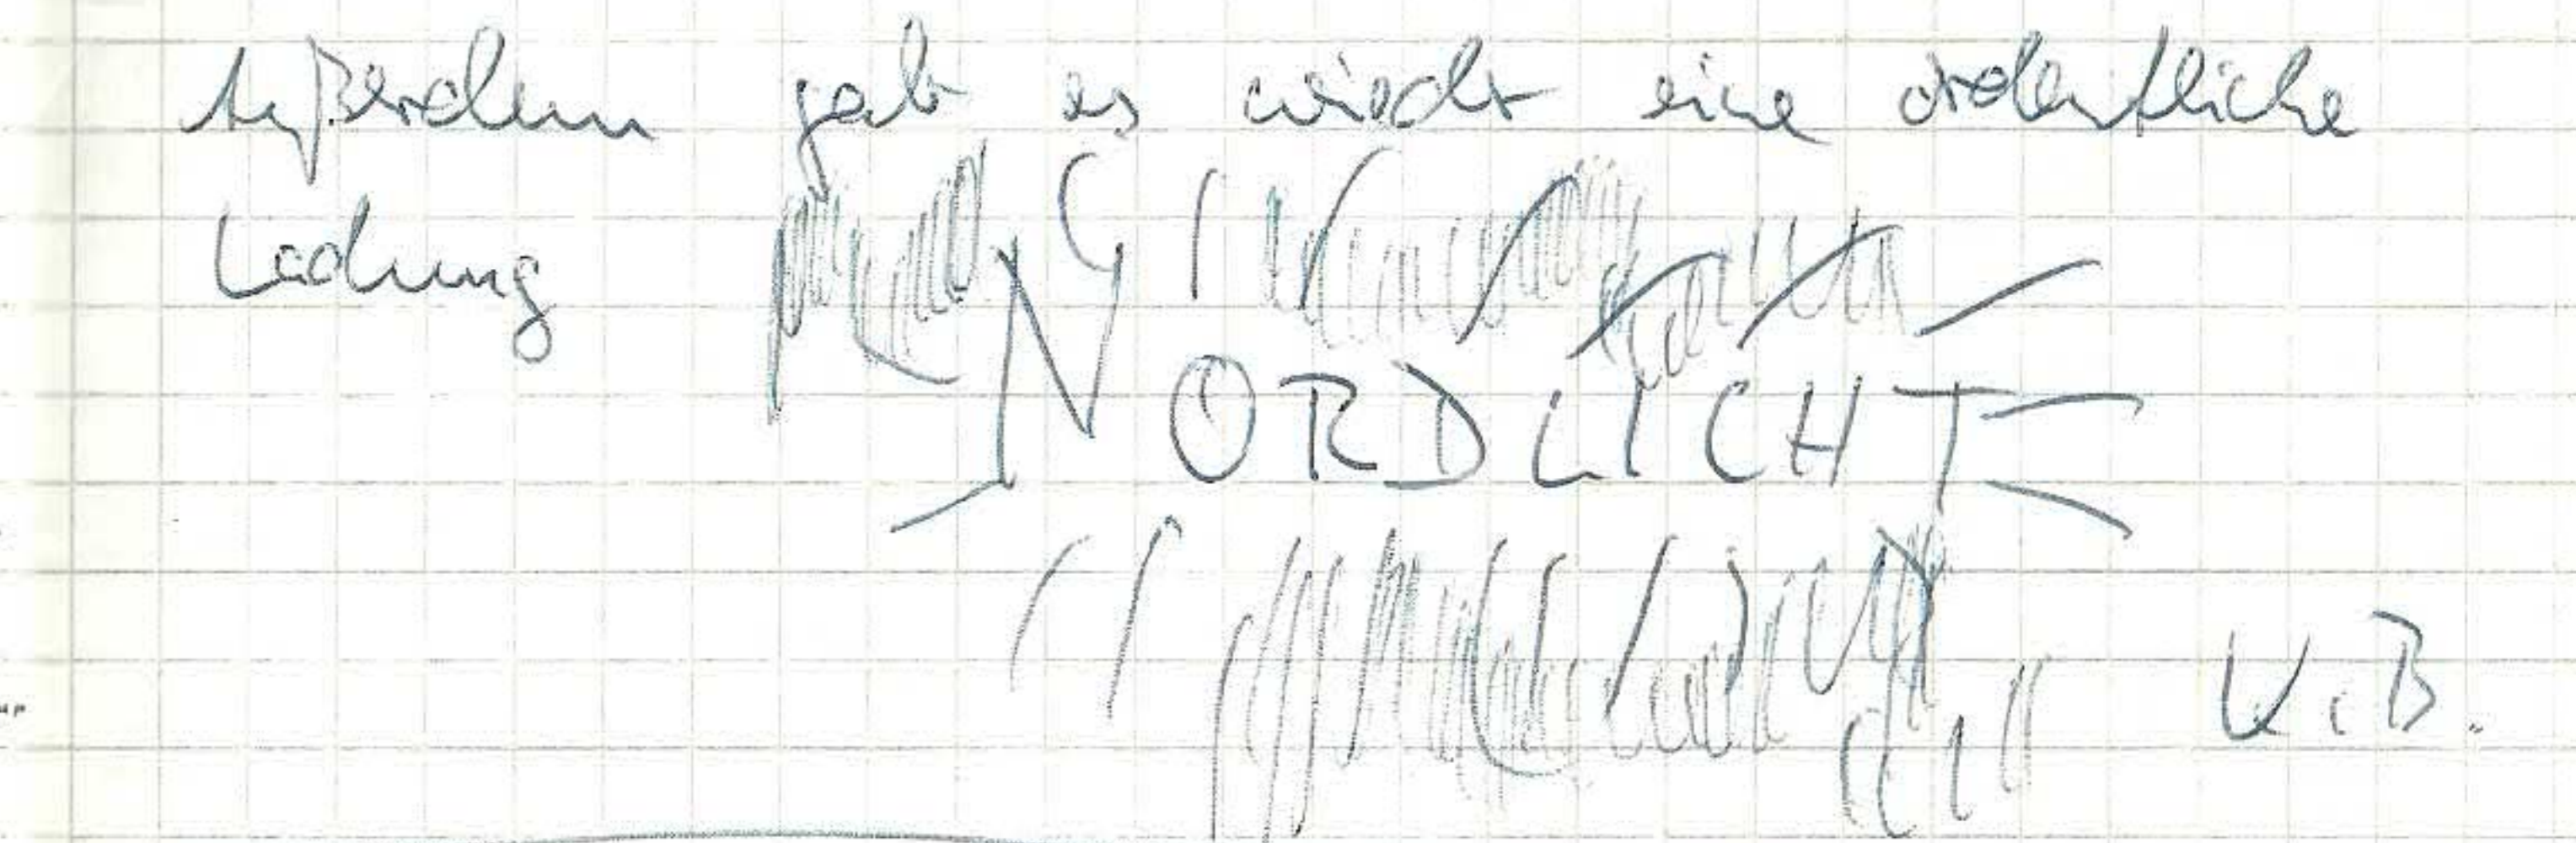 Außerdem gab es wieder eine ordentliche
Ladung
NORDLICHT
U.B.